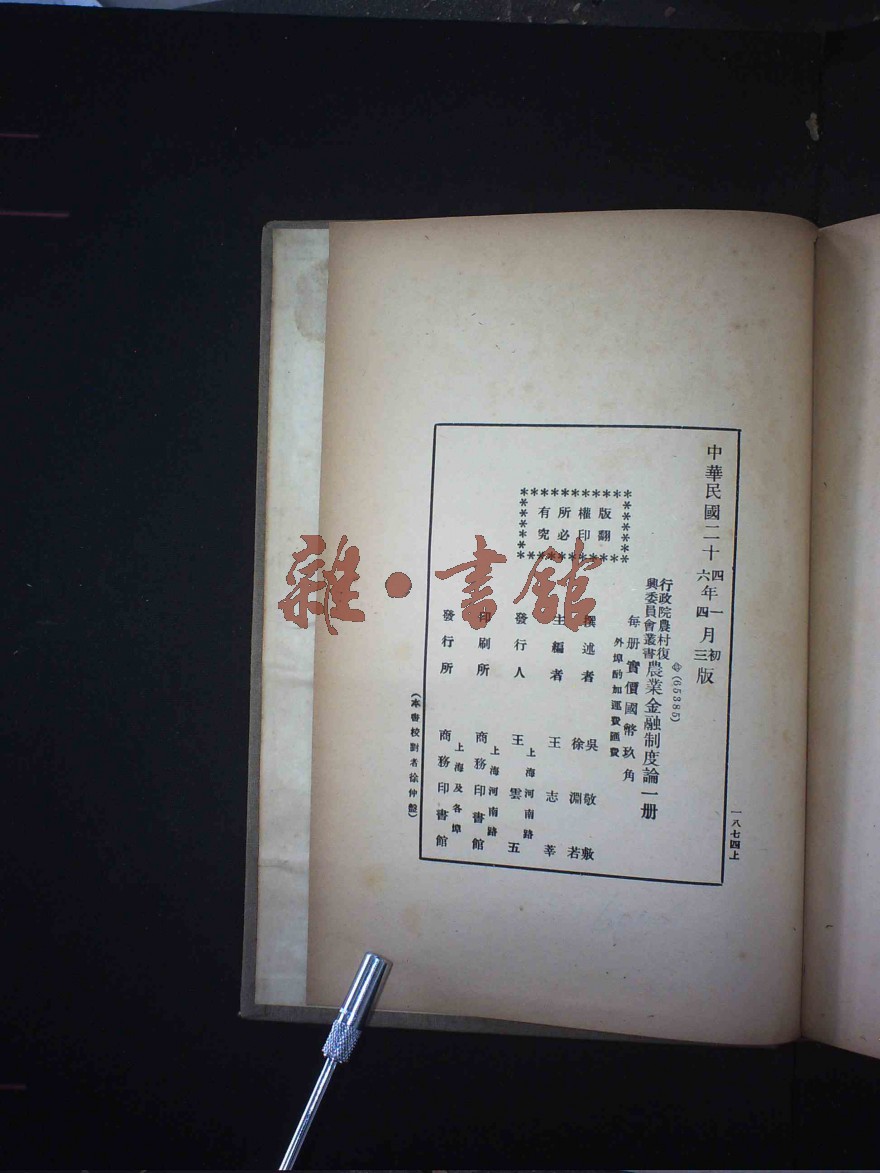 中華民國二十四年一月初版
六四三
(65385)
行政院農村復
興委員會叢書
農業金融制度論一册
每册實價國幣玖角
外埠酌加運費匯費
版權所有
翻印必究
撰述者
吳敬敷
徐淵若
主編者
王志莘
發行人
上海河南路
王雲五
印刷所
上海河南路
商務印書館
發行所
上海及各埠
商務印書館
(本書校對者徐仲盤)
一八七四上
雜·書館